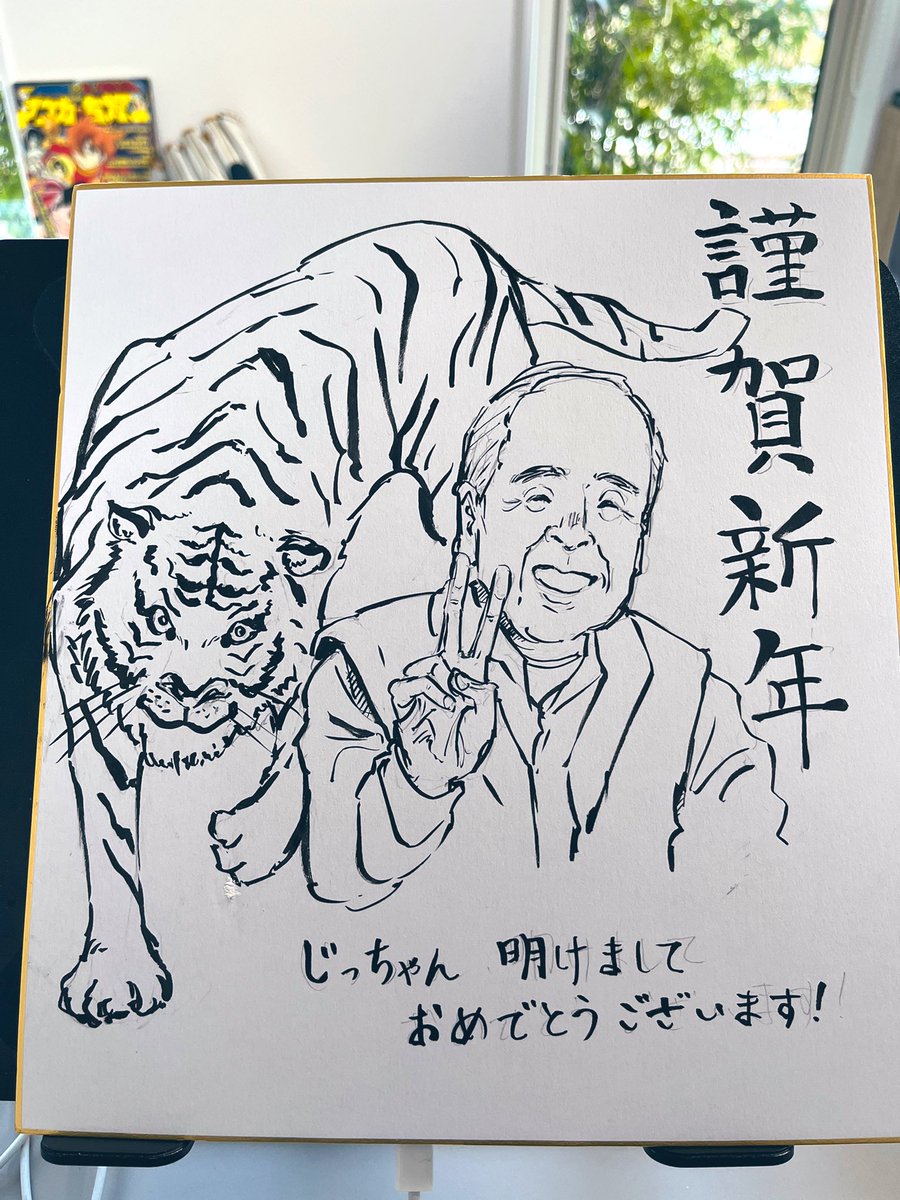 謹賀新年
じっちゃん 明けまして
おめでとうございます!